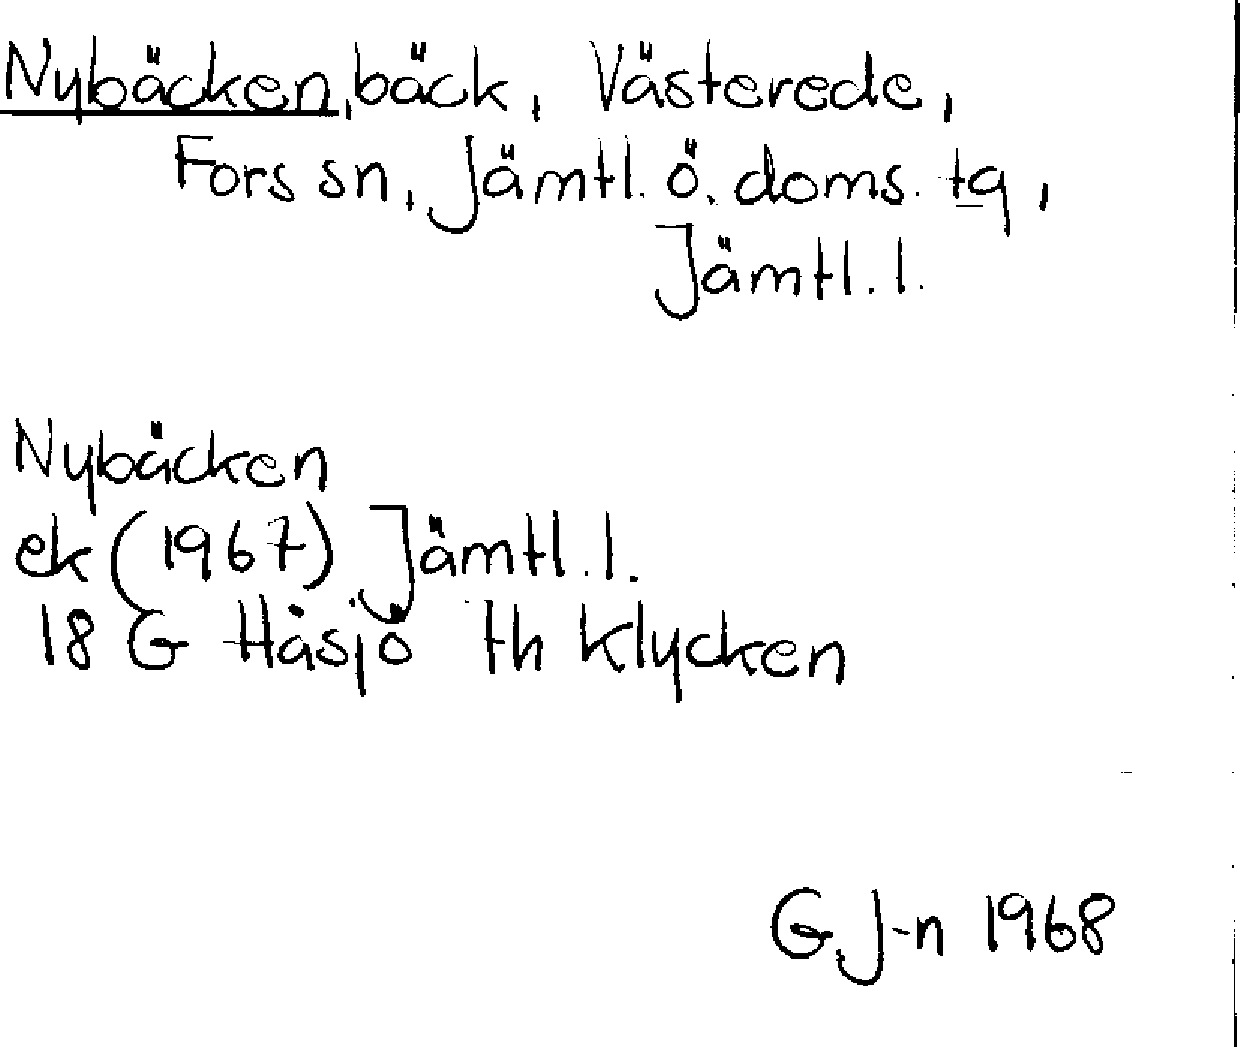 Nybäcken, bäck, Västerede,
Fors sn, Jämtl. ö. doms. tg,
Jämtl. l.
Nybäcken
ek (1967) Jämtl. l.
18 G Håsjö th Klycken
G J-n 1968